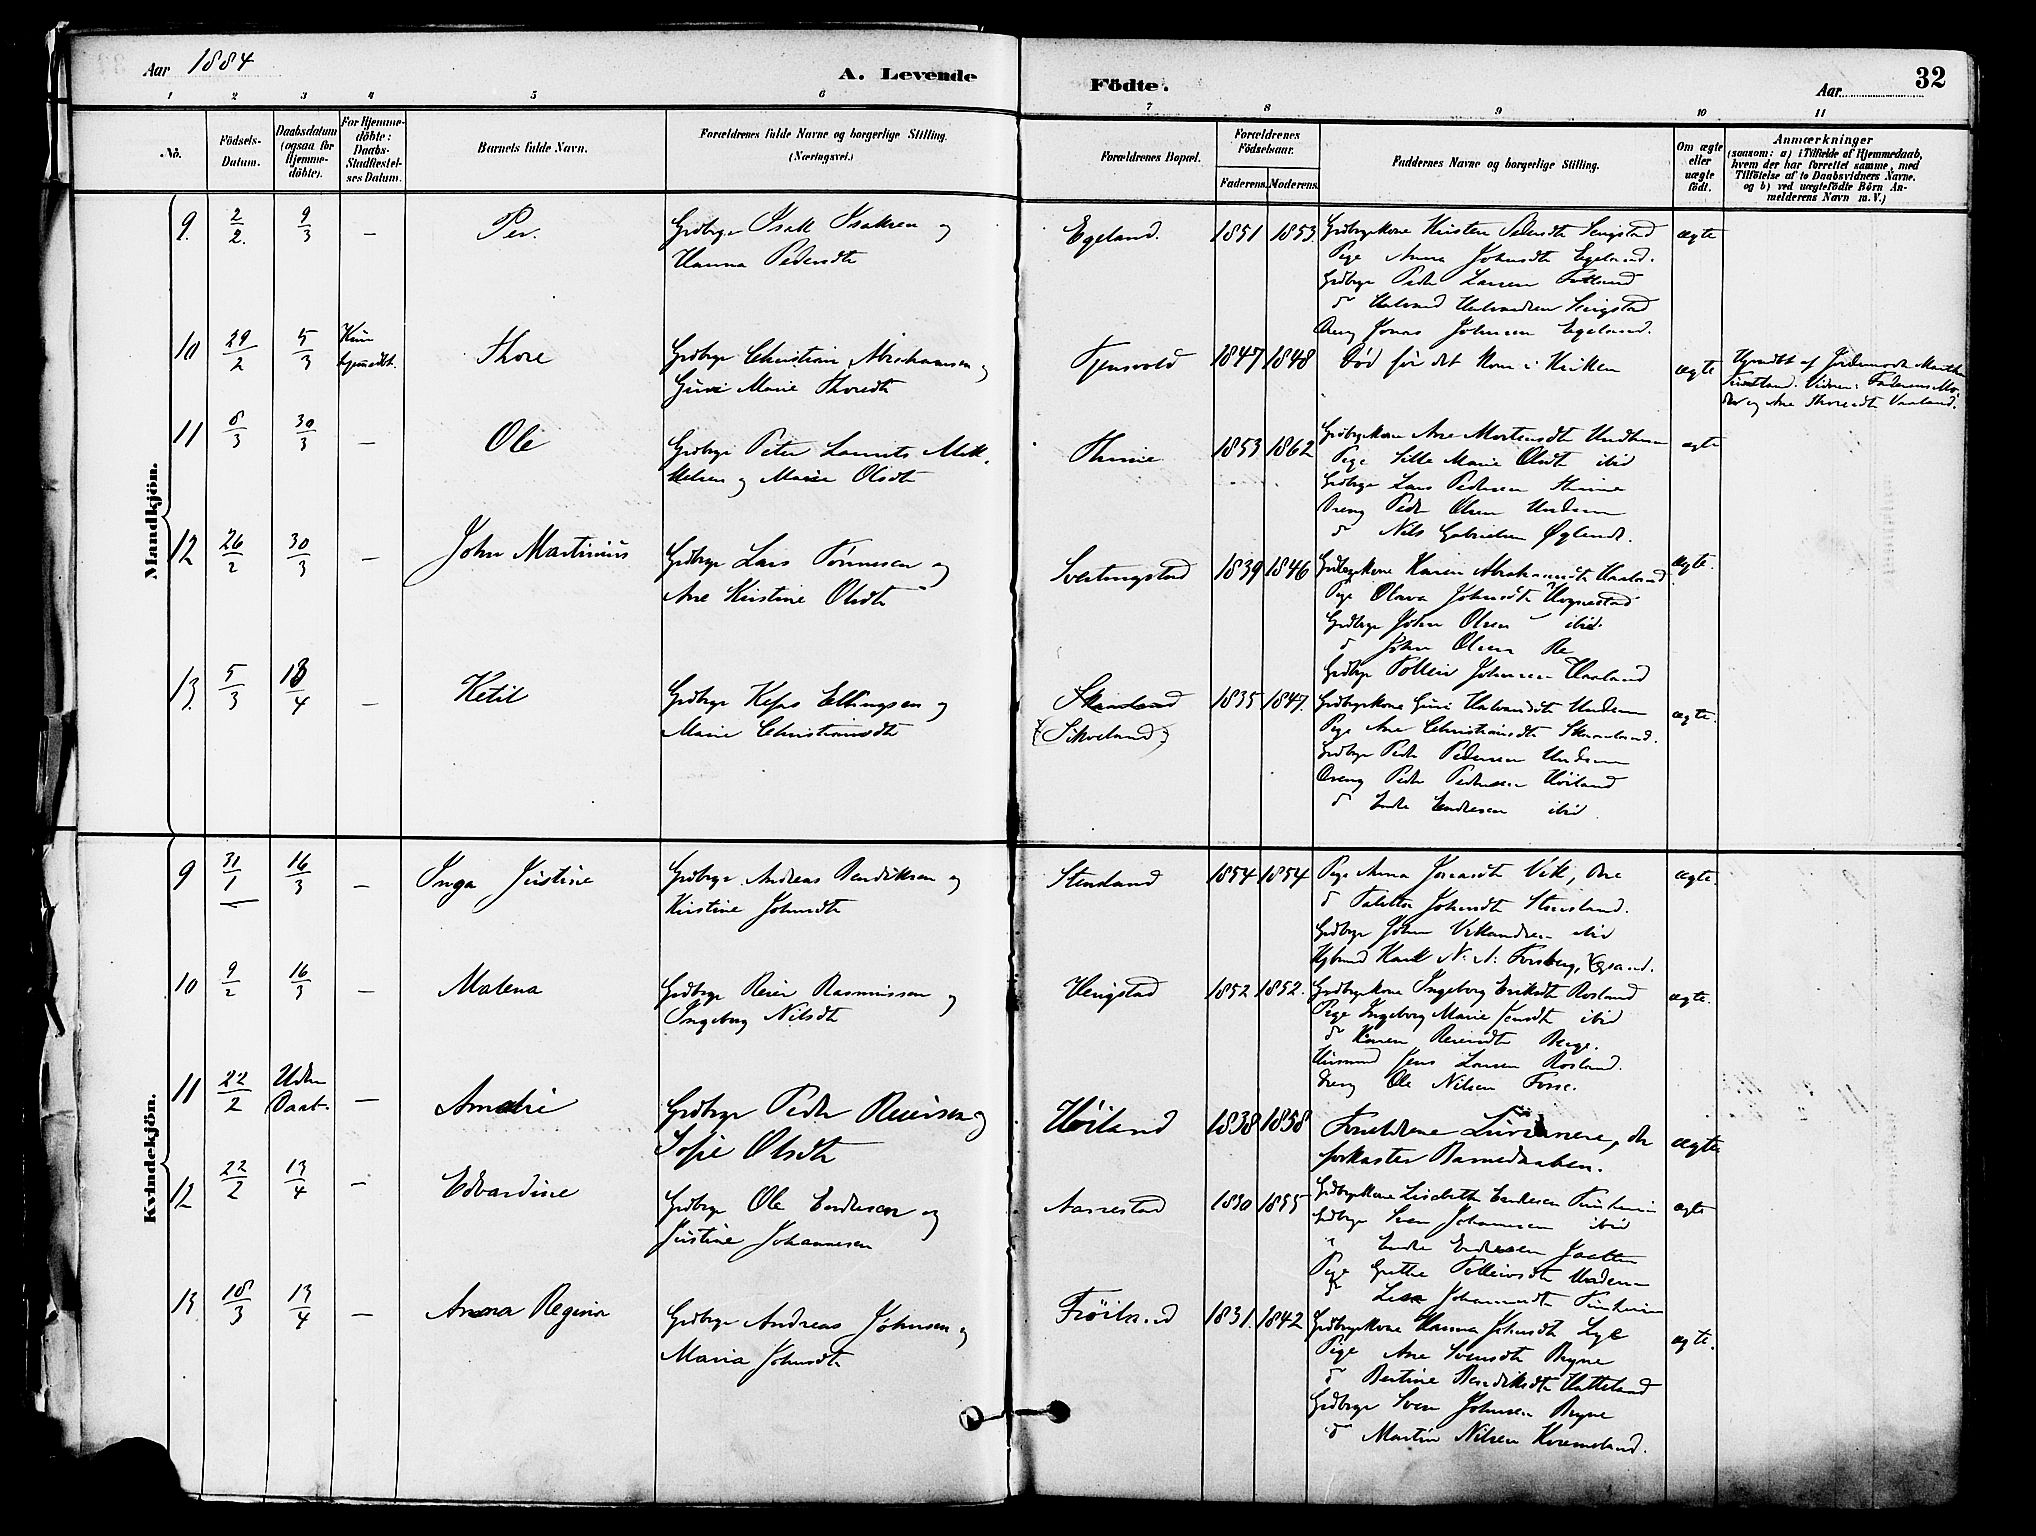 Aar 1884
A. Levende
Födte.
Aar
32
1 2 3 4 5 6 7 8 9 10 11
No.
Födsels-Datum.
Daabsdatum (ogsaa for Hjemmedöbte).
For Hjemmedöbte: Daabs-Stadfæstelses Datum.
Barnets fulde Navn.
Forældrenes fulde Navne og borgerlige Stilling.
(Næringsvei.)
Forældrenes Bopæl.
Forældrenes Födselsaar.
Faderens. Moderens.
Faddernes Navne og borgerlige Stilling.
Om ægte eller uægte födt.
Anmærkninger
(saasom: a) i Tilfælde af Hjemmedaab,
hvem der har forrettet samme, med
Tilföielse af to Daabsvidners Navne.
og b) ved uægtefödte Börn An-
melderens Navn m. V.)
Mandkjön.
9. 2/2. 9/3 — Per. Grdbrgr Isak Isaksen og
Hanna Pedersdtr
Egeland. 1851 1853. ægte
Grdbrgrkone Kirsten Pedersdtr
Pige Anna Johnsdtr Egeland.
Grdbrgr Pedr Larsen
Dreng Jonas Johnsen Egeland.
10 29/2 5/3 Kun hjemdbt. Thore Grdbrgr Christian Abrahamsen og
Guri Marie Thoresdtr
Tjensvold 1847 1848 Död för det kom i Kirken ægte
Hjemdbt af Jordemodr Marthe
Vidner: Faderens Mo-
der og Ane Thoresdtr Vaaland.
11 8/3 30/3 — Ole Grdbrgr Peter Laurits Mik-
kelsen og Marie Olsdtr
Thime 1853 1862 ægte
Grdbrgrkone Ane Mortensdtr Undheim
Pige Sille Marie Olsdtr ibid
Grdbrgr Lars Pedersen Thime
Dreng Pedr Olsen Undheim
d Nils Gabrielsen Øglend.
12 26/2 30/3 — John Martinius Grdbrgr Lars Tønnesen og
Ane Kirstine Olsdtr
Svertingstad 1839 1846 ægte.
Grdbrgrkone Karen Abrahamsdtr Haaland
Pige Olava Johnsdtr Hognestad
Grdbrgr John Olsen ibid.
d John Olsen Re
Grdbrgr Tollein Johnsen Haaland
13. 5/3 13/4 — Ketil Grdbrgr Elling­sen og
Marie Christiansdtr
Skaaland
(Sikveland) 1835 1847. ægte.
Grdbrgrkone Guri Halvardsdtr Undheim
Pige Ane Christiansdtr Skaaland.
Grdbrgr Pedr Pedersen Undheim
Dreng Pedr Pedersen Høiland
d Endre Endresen ibid
Kvindekjön.
9 31/1 16/3 — Inga Justine Grdbrgr Andreas Bendiksen og
Kirstine Johnsdtr
Stensland 1854 1854 ægte.
Pige Anna Jonasdtr Vik,
d Taletta Johnsdtr Stensland.
Grdbrgr John ibid
N. N. Forsberg,
10 9/2 16/3 — Malena Grdbrgr Reier Rasmussen og
Ingeborg Nilsdtr
Hengstad 1852 1852. ægte.
Grdbrgrkone Ingeborg Eriksdtr Rosland
Pige Ingeborg Marie Jensdtr ibid
d Karen Reiersdtr Berge.
Husmand Jens Larsen Rosland.
Dreng Ole Nilsen Fosse.
11 22/2 Uden Daab. — Amalie Grdbrgr Pedr Reiersen og
Sofie Olsdtr
Høiland 1838 1858 ægte
Forældrene Lurianere, der
forkaster Barnedaaben.
12 22/2 13/4 — Edvardine Grdbrgr Ole Endresen og
Justine Johannesen
Aarrestad 1850 1855 ægte
Grdbrgrkone Lisebeth Endresen
Grdbrgr Sven Johannesen ibid
" Endre Endresen Jaatten
Pige Grethe Tolleivsdtr Undheim
d Lisa Johannesdtr
13. 18/3 13/4 — Anna Regina Grdbrgr Andreas Johnsen og
Maria Johnsdtr
Frøiland 1831. 1842 ægte.
Grdbrgrkone Hanna Johnsdtr Lye
Pige Ane Svensdtr Bryne
d Bertine Bendiksdtr Hatteland
Grdbrgr Sven Johnsen Bryne
d Martin Nilsen Kverneland.